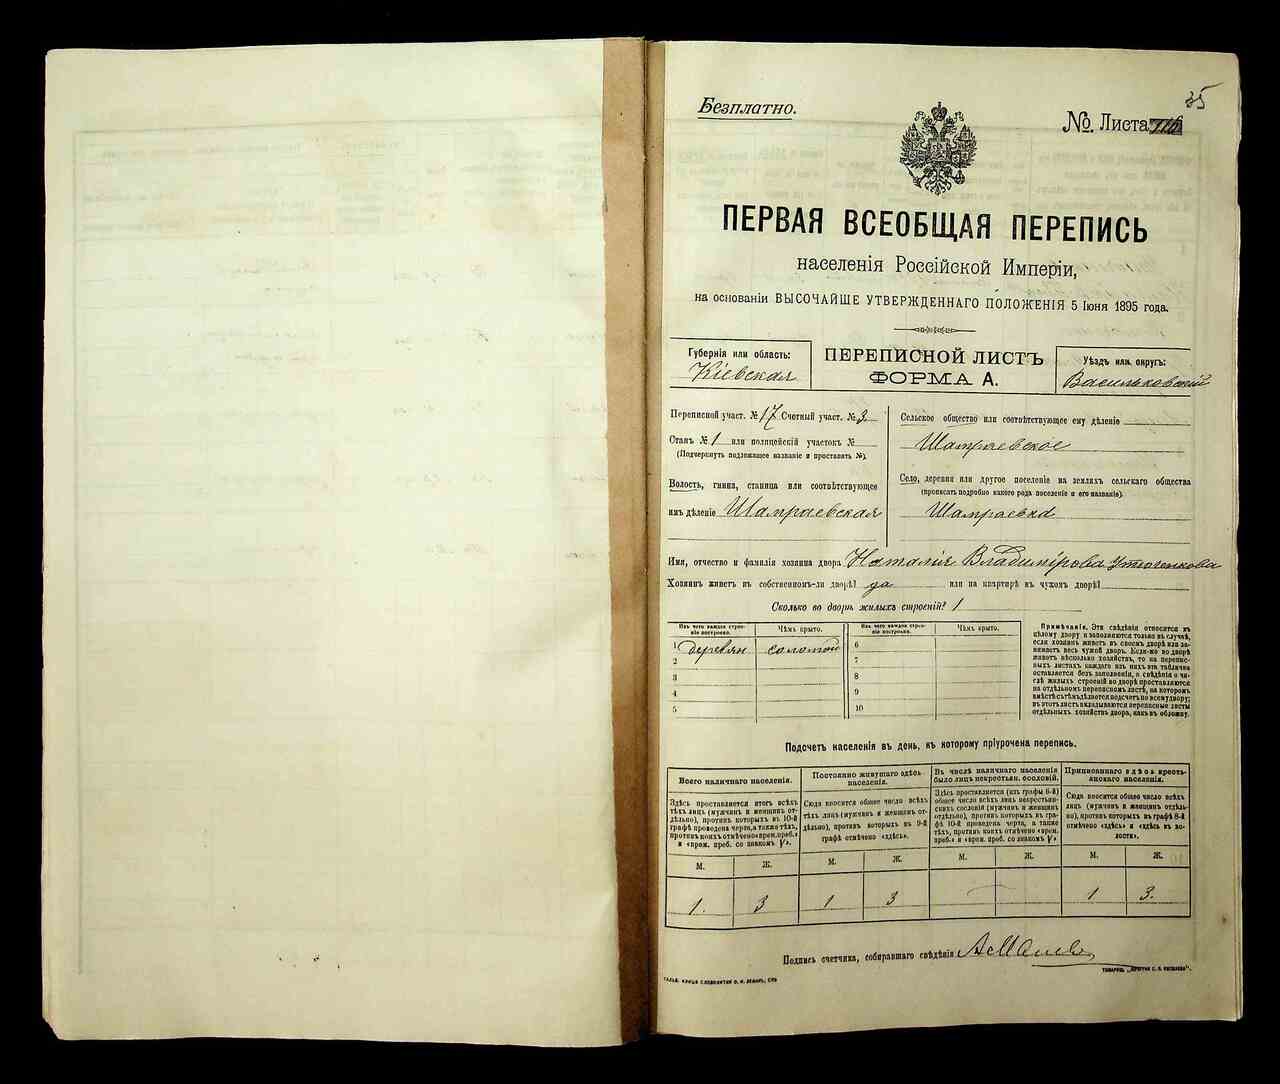 35
Безплатно.
№ Листа
ПЕРВАЯ ВСЕОБЩАЯ ПЕРЕПИСЬ
населенія Россійской Имперіи,
на основаніи ВЫСОЧАЙШЕ УТВЕРЖДЕННАГО ПОЛОЖЕНІЯ 5 Іюня 1895 года.
Губернія или область:
Кіевская
ПЕРЕПИСНОЙ ЛИСТЪ
ФОРМА А.
Уѣздъ или округъ:
Васильковскій
Переписной участ. № 17 Счетный участ. № 3
Станъ № 1 или полицейскій участокъ №
(Подчеркнуть подлежащее названіе и проставить №).
Волость, гмина, станица или соотвѣтствующее
имъ дѣленіе Шамраевская
Сельское общество или соотвѣтствующее ему дѣленіе
Шамраевское
Село, деревня или другое поселеніе на земляхъ сельскаго общества
(прописать подробно какого рода поселеніе и его названіе).
Шамраевка
Имя, отчество и фамилія хозяина двора Наталія Владимірова
Хозяинъ живетъ въ собственномъ-ли дворѣ? да или на квартирѣ въ чужомъ дворѣ?
Сколько во дворѣ жилыхъ строеній? 1
Изъ чего каждое строе-
ніе построено.
Чѣмъ крыто.
Изъ чего каждое строе-
ніе построено.
Чѣмъ крыто.
1 деревян соломой
2
3
4
5
6
7
8
9
10
Примѣчаніе. Эти свѣдѣнія относятся къ
цѣлому двору и заполняются только въ случаѣ,
если хозяинъ живетъ въ своемъ дворѣ или за-
нимаетъ весь чужой дворъ. Если-же во дворѣ
живутъ нѣсколько хозяйствъ, то на перепис-
ныхъ листахъ каждаго изъ нихъ эта табличка
оставляется безъ заполненія, а свѣдѣнія о чи-
слѣ жилыхъ строеній во дворѣ проставляются
на отдѣльномъ переписномъ листѣ, на которомъ
вмѣстѣ съ тѣмъ дѣлается подсчетъ по всему двору;
въ этотъ листъ вкладываются переписные листы
отдѣльныхъ хозяйствъ двора, какъ въ обложку.
Подсчетъ населенія въ день, къ которому пріурочена перепись.
Всего наличнаго населенія.
Здѣсь проставляется итогъ всѣхъ
тѣхъ лицъ (мужчинъ и женщинъ от-
дѣльно), противъ которыхъ въ 10-й
графѣ проведена черта, а также тѣхъ,
противъ коихъ отмѣчено «врем. преб.»
и «врем. преб. со знакомъ V».
Постоянно живущаго здѣсь
населенія.
Сюда вносится общее число всѣхъ
тѣхъ лицъ (мужчинъ и женщинъ от-
дѣльно), противъ которыхъ въ 9-й
графѣ отмѣчено «здѣсь».
Въ числѣ наличнаго населенія
было лицъ некрестьян. сословій.
Здѣсь проставляется (изъ графы 6-й)
общее число всѣхъ лицъ некрестьян-
скихъ сословій (мужчинъ и женщинъ
отдѣльно), противъ которыхъ въ гра-
фѣ 10-й проведена черта, а также
тѣхъ, противъ коихъ отмѣчено «врем.
преб.» и «врем. преб. со знакомъ V».
Приписаннаго здѣсь кресть-
янскаго населенія.
Сюда вносится общее число всѣхъ
лицъ (мужчинъ и женщинъ отдѣль-
но), противъ которыхъ въ графѣ 8-й
отмѣчено «здѣсь» и «здѣсь въ во-
лости».
М. Ж. М. Ж. М. Ж. М. Ж.
1. 3 1 3 — 1 3.
Подпись счетчика, собиравшаго свѣдѣнія